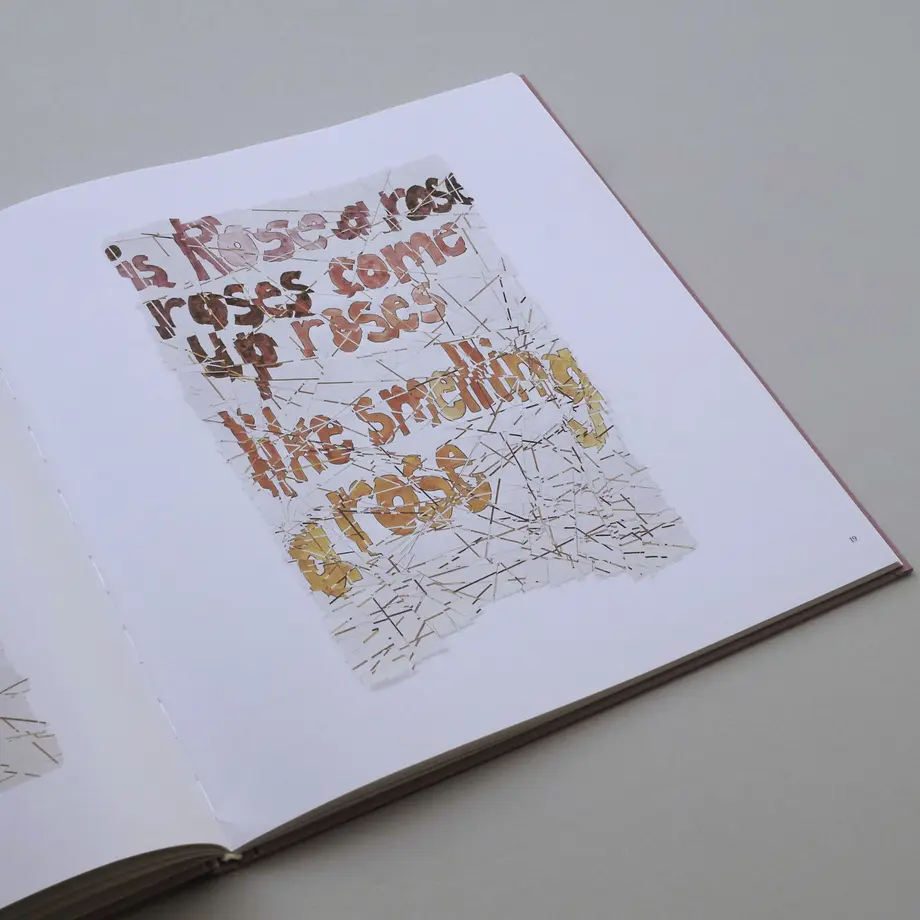 is Rose a rose
roses come
up roses
like smelling
a rose
19